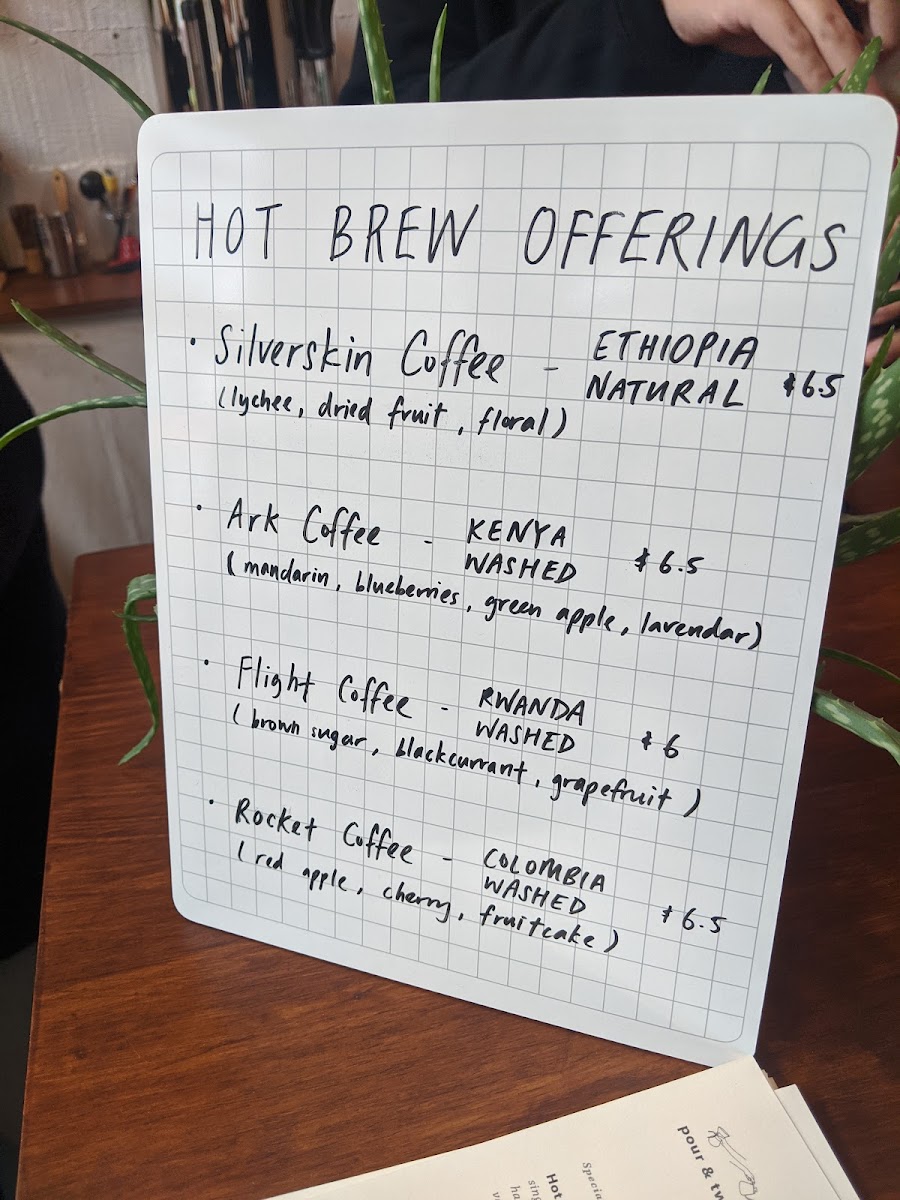 HOT BREW OFFERINGS
• Silverskin Coffee - ETHIOPIA
NATURAL $6.5
(lychee, dried fruit, floral)
• Ark Coffee - KENYA
WASHED $6.5
(mandarin, blueberries, green apple, lavendar)
• Flight Coffee - RWANDA
WASHED $6
(brown sugar, blackcurrant, grapefruit)
• Rocket Coffee - COLOMBIA
WASHED $6.5
(red apple, cherry, fruitcake)
pour &
Hot